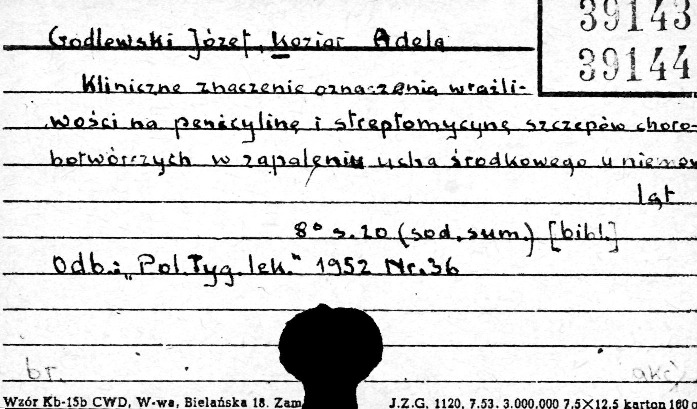 39143
39144
Godlewski Józef, Kozioł Adela
Kliniczne znaczenie oznaczenia wrażli-
wości na penicylinę i streptomycynę szczepów choro-
botwórczych w zapaleniu ucha środkowego u niemow
ląt
8° s. 20 (sod. sum.) [bibl.]
Odb.: „Pol. Tyg. lek.” 1952 Nr. 36
br. akc
Wzór Kb-15b CWD, W-wa, Bielańska 18. Zam J.Z.G. 1120, 7.53. 3.000.000 7,5×12,5 karton 160 g